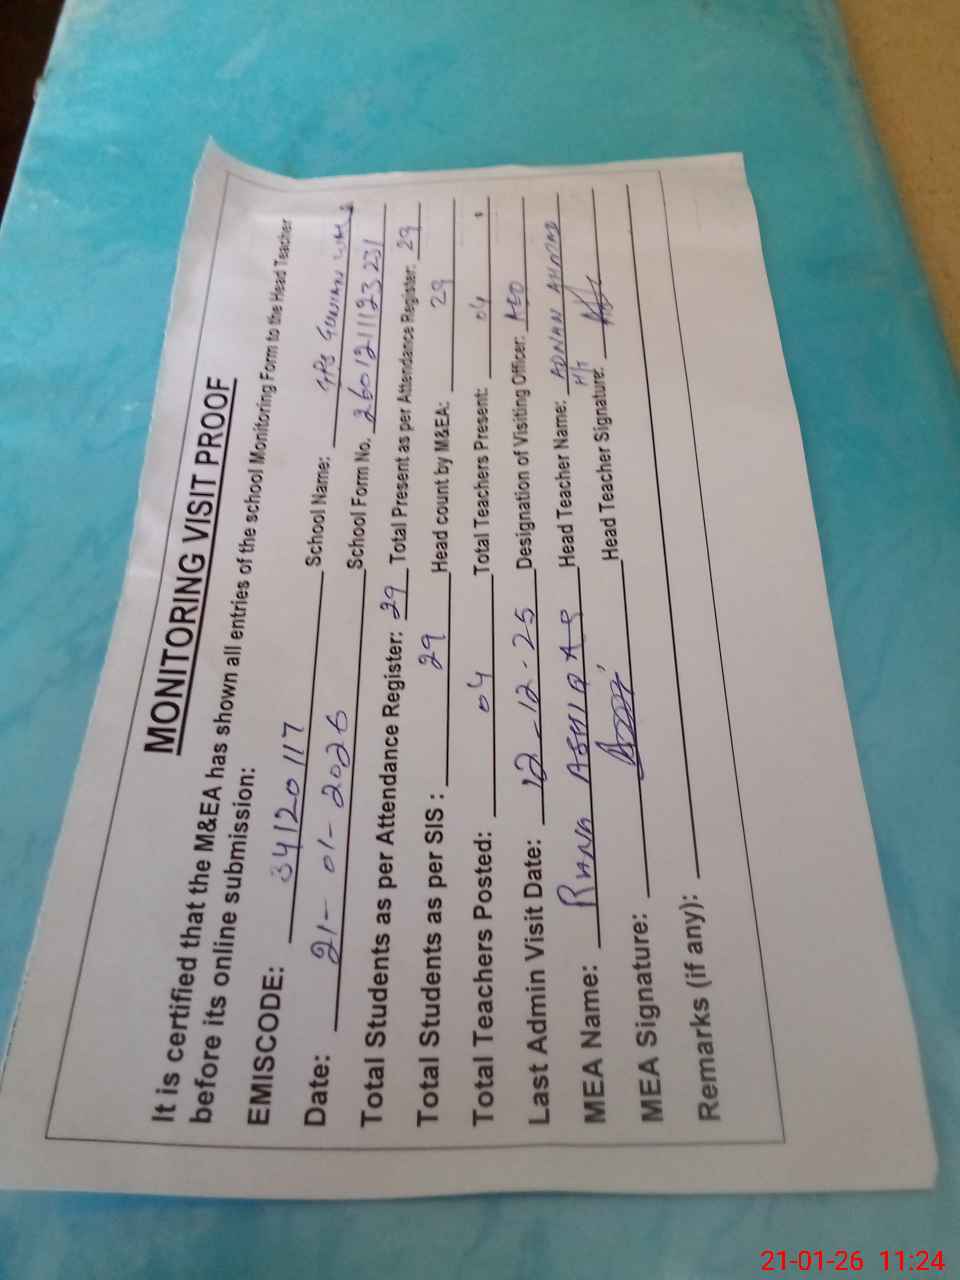 MONITORING VISIT PROOF
It is certified that the M&EA has shown all entries of the school Monitoring Form to the Head Teacher
before its online submission:
EMISCODE: 34120117 School Name: GPS
Date: 21-01-2026 School Form No. 2601211123231
Total Students as per Attendance Register: 29 Total Present as per Attendance Register: 29
Total Students as per SIS : 29 Head count by M&EA: 29
Total Teachers Posted: 04 Total Teachers Present: 04
Last Admin Visit Date: 12-12-25 Designation of Visiting Officer: AEO
MEA Name: RANA ASHIQ Head Teacher Name: ADNAN AHMAD
H/T
MEA Signature: Head Teacher Signature:
Remarks (if any):
21-01-26 11:24